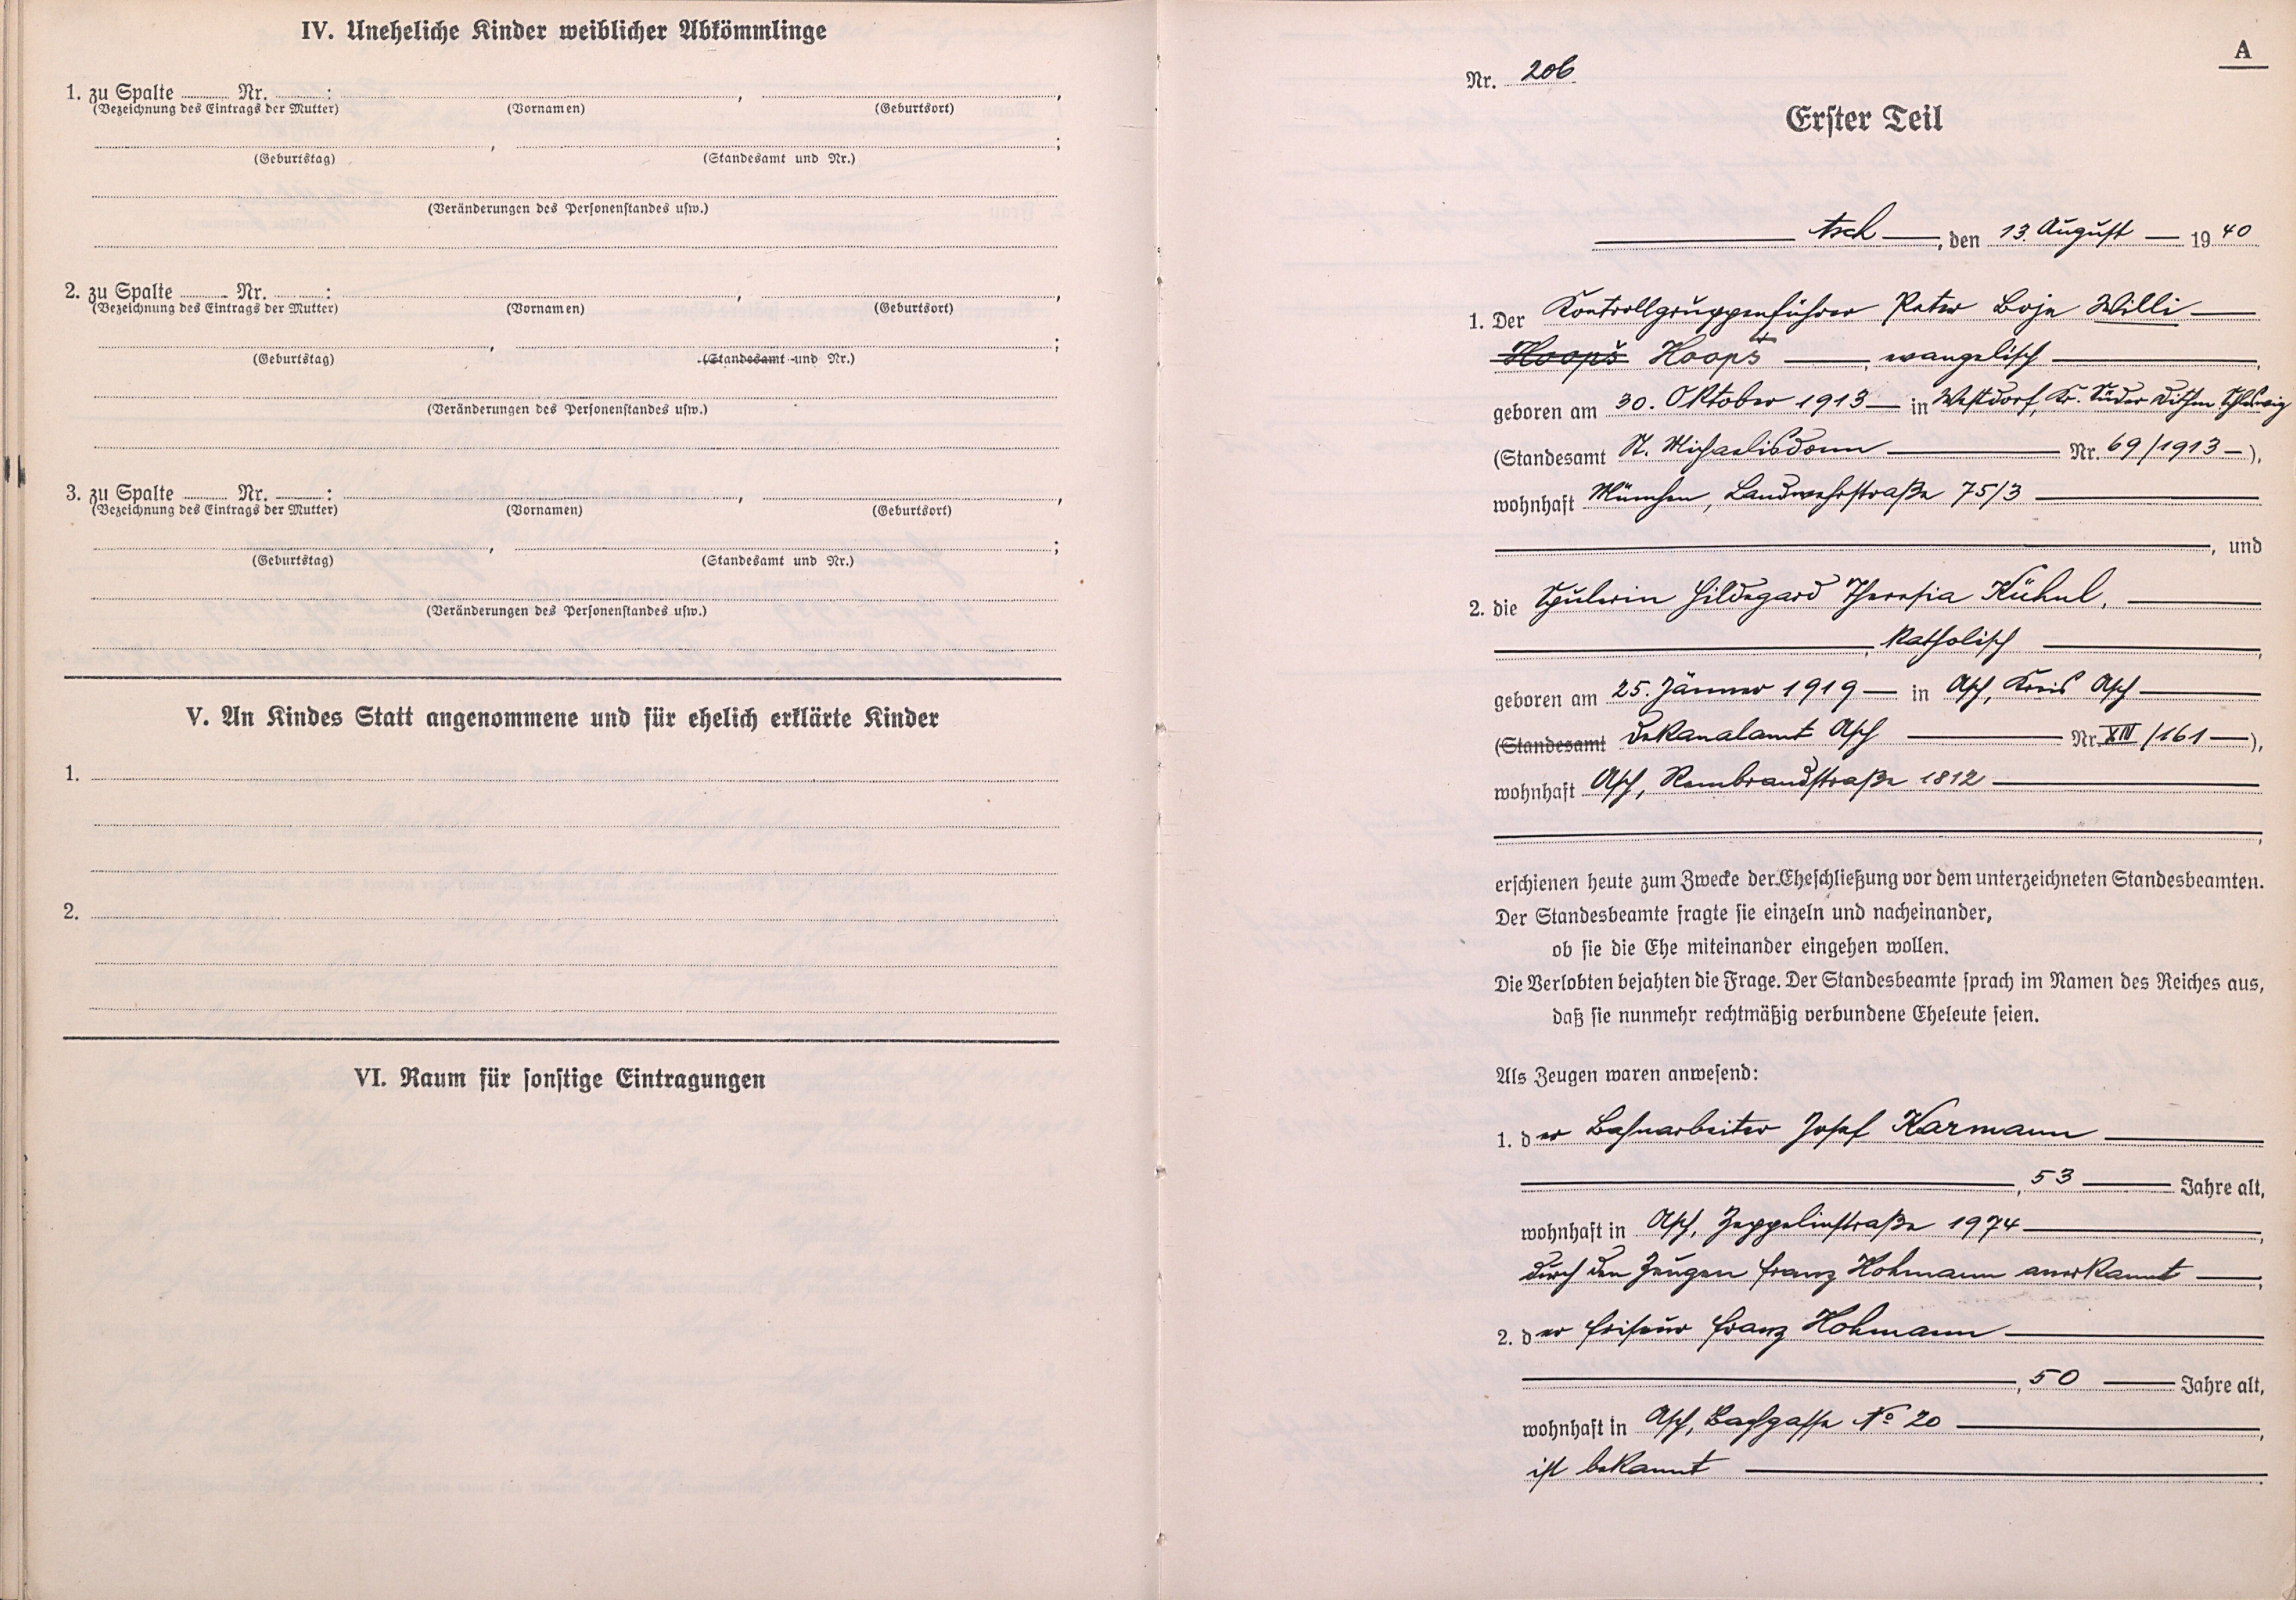 IV. Uneheliche Kinder weiblicher Abkömmlinge
1. zu Spalte ........ Nr. ........ :
(Bezeichnung des Eintrags der Mutter) (Vornamen) (Geburtsort)
(Geburtstag) (Standesamt und Nr.)
(Veränderungen des Personenstandes usw.)
2. zu Spalte ........ Nr. ........ :
(Bezeichnung des Eintrags der Mutter) (Vornamen) (Geburtsort)
(Geburtstag) (Standesamt und Nr.)
(Veränderungen des Personenstandes usw.)
3. zu Spalte ........ Nr. ........ :
(Bezeichnung des Eintrags der Mutter) (Vornamen) (Geburtsort)
(Geburtstag) (Standesamt und Nr.)
(Veränderungen des Personenstandes usw.)
V. An Kindes Statt angenommene und für ehelich erklärte Kinder
1.
2.
VI. Raum für sonstige Eintragungen
A
Nr. 206
Erster Teil
Asch, den 13. August 1940
1. Der Kontrollgruppenführer Peter Boje Willi
Hoops Hoops, evangelisch,
geboren am 30. Oktober 1913 in Westdorf, Kr. Süder Dithm Schleswig
(Standesamt St. Michaelisdonn Nr. 69/1913),
wohnhaft München, Landwehrstraße 75/3
, und
2. die Spulerin Hildegard Theresia Kühnl,
, katholisch,
geboren am 25. Jänner 1919 in Asch, Kreis Asch
(Standesamt Dekanalamt Asch Nr. XIV/161),
wohnhaft Asch, Rembrandstraße 1812
,
erschienen heute zum Zwecke der Eheschließung vor dem unterzeichneten Standesbeamten.
Der Standesbeamte fragte sie einzeln und nacheinander,
ob sie die Ehe miteinander eingehen wollen.
Die Verlobten bejahten die Frage. Der Standesbeamte sprach im Namen des Reiches aus,
daß sie nunmehr rechtmäßig verbundene Eheleute seien.
Als Zeugen waren anwesend:
1. der Bahnarbeiter Josef Karmann
, 53 Jahre alt,
wohnhaft in Asch, Zeppelinstraße 1974,
durch den Zeugen Franz Hohmann anerkannt;
2. der Friseur Franz Hohmann
, 50 Jahre alt,
wohnhaft in Asch, Bachgasse № 20,
ist bekannt.